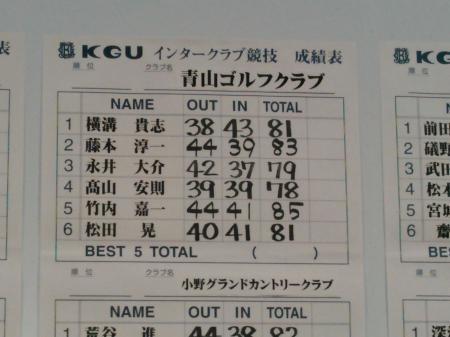 績表
KGU インタークラブ競技 成績表
KGU
順位 クラブ名
青山ゴルフクラブ
NAME OUT IN TOTAL
1 横溝 貴志 38 43 81
2 藤本 淳一 44 39 83
3 永井 大介 42 37 79
4 髙山 安則 39 39 78
5 竹内 嘉一 44 41 85
6 松田 晃 40 41 81
BEST 5 TOTAL ( )
順位 クラブ名
小野グランドカントリークラブ
NAME OUT IN TOTAL
1 荒谷 進 44 38 82
順位
1 前田
2 礒野
3 武田
4 松本
5 宮城
6 齋
BEST
順位
1 深